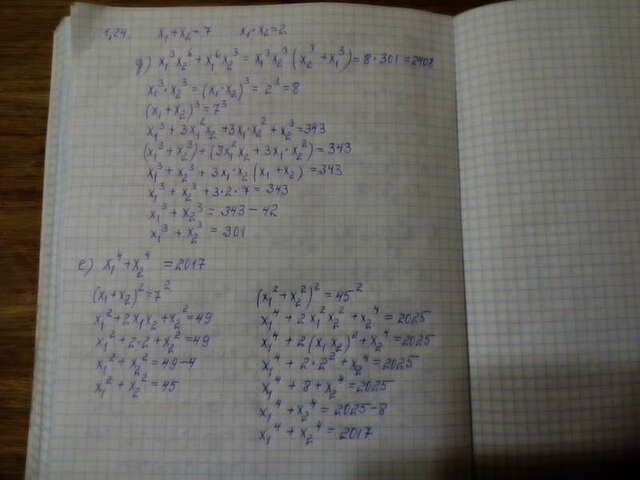 1.24. x₁+x₂=7 x₁·x₂=2
g) x₁³x₂⁶+x₁⁶x₂³=x₁³x₂³(x₂³+x₁³)=8·301=2408
x₁³·x₂³=(x₁·x₂)³=2³=8
(x₁+x₂)³=7³
x₁³+3x₁²x₂+3x₁·x₂²+x₂³=343
(x₁³+x₂³)+(3x₁²x₂+3x₁·x₂²)=343
x₁³+x₂³+3x₁·x₂(x₁+x₂)=343
x₁³+x₂³+3·2·7=343
x₁³+x₂³=343-42
x₁³+x₂³=301
e) x₁⁴+x₂⁴=2017
(x₁+x₂)²=7²
x₁²+2x₁x₂+x₂²=49
x₁²+2·2+x₂²=49
x₁²+x₂²=49-4
x₁²+x₂²=45
(x₁²+x₂²)²=45²
x₁⁴+2x₁²x₂²+x₂⁴=2025
x₁⁴+2(x₁x₂)²+x₂⁴=2025
x₁⁴+2·2²+x₂⁴=2025
x₁⁴+8+x₂⁴=2025
x₁⁴+x₂⁴=2025-8
x₁⁴+x₂⁴=2017